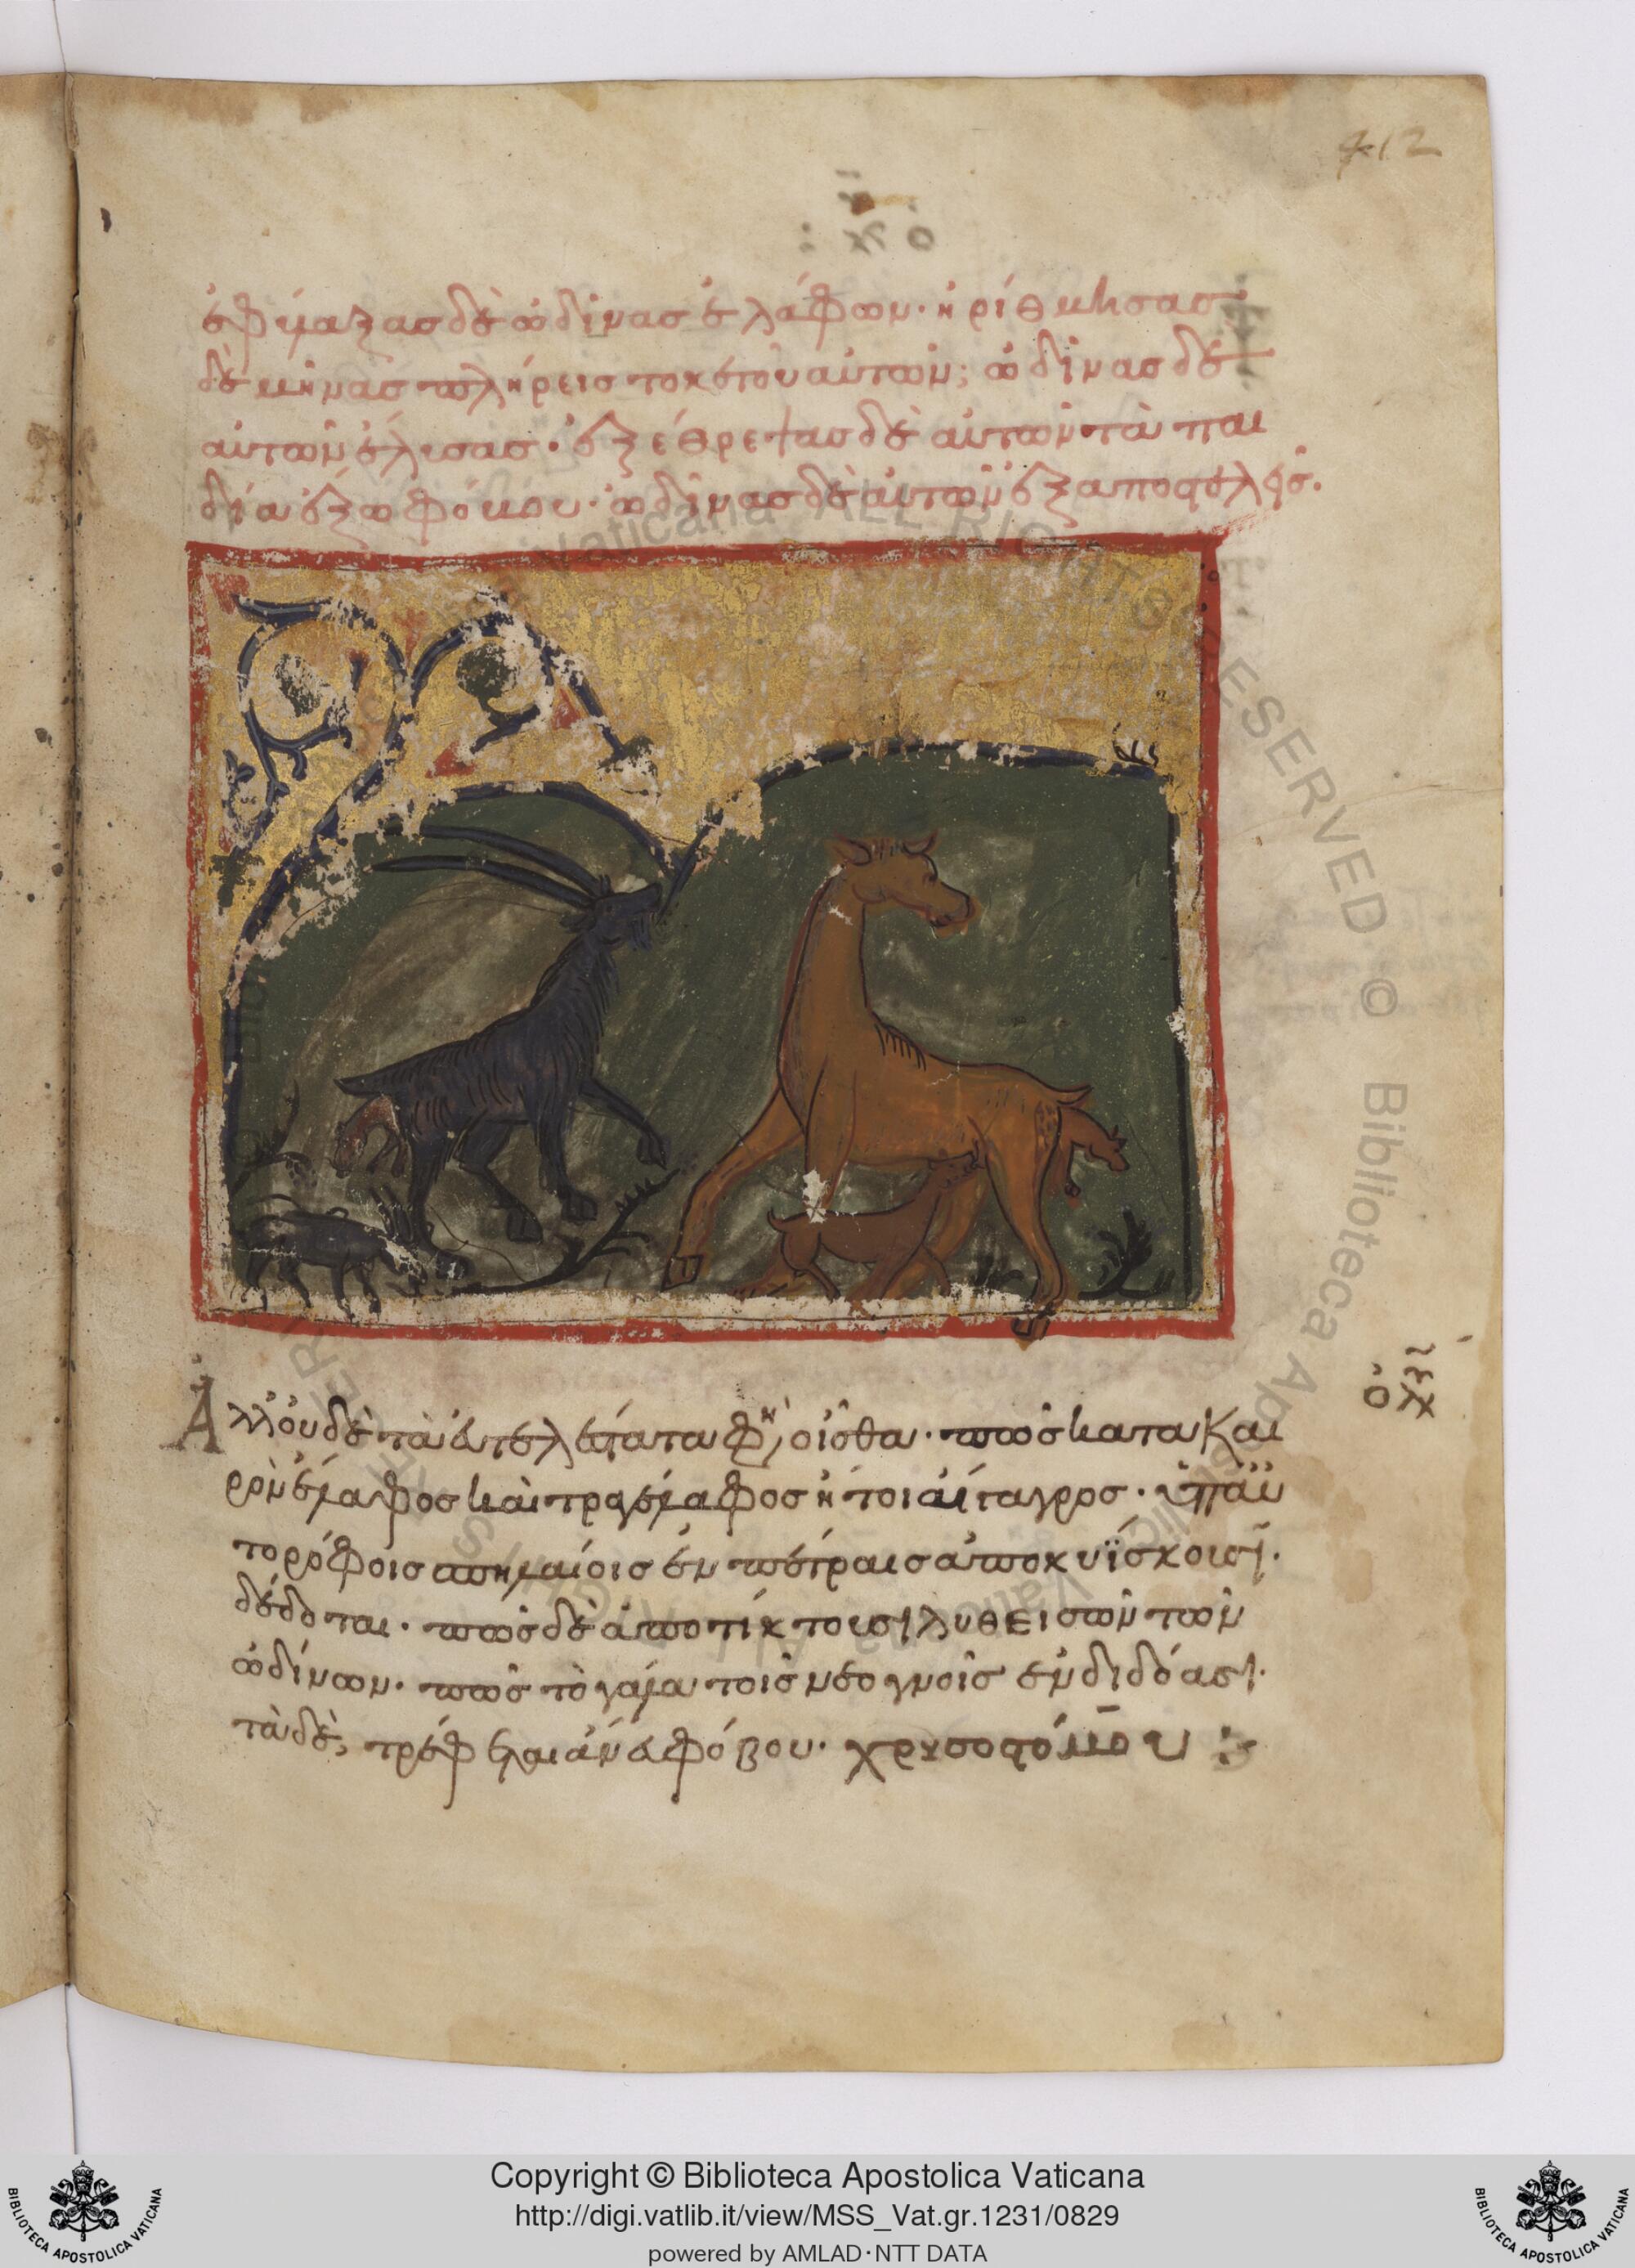 412
ἐφύλαξας δὲ ὠδῖνας ἐλάφων· ἠρίθμησας
δὲ μῆνας πλήρεις τοκετοῦ αὐτῶν; ὠδῖνας δὲ
αὐτῶν ἔλυσας· ἐξέθρεψας δὲ αὐτῶν τὰ παι
δία ἔξω φόβου· ὠδῖνας δὲ αὐτῶν ἐξαποστελεῖς.
Ἀλλ' οὐδὲ τὰ εὐτελέστατα φησὶν οἶσθα· πῶς κατα και
ρὸν ἔλαφος καὶ τραγέλαφος ἤτοι αἴγαγρος· ὑπ' αὐ
τορόφοις σπηλαίοις ἐν πέτραις ἀποκυΐσκουσι.
δέδοται· πῶς δὲ ἀποτίκτουσι λυθεισῶν τῶν
ὠδίνων· πῶς τὸ γάλα τοῖς νεογνοῖς ἐνδιδόασι.
τὰ δὲ, τρέφεται ἄνευ φόβου· χρυσοστόμου :
Copyright © Biblioteca Apostolica Vaticana
http://digi.vatlib.it/view/MSS_Vat.gr.1231/0829
powered by AMLAD·NTT DATA
BIBLIOTECA APOSTOLICA VATICANA
BIBLIOTECA APOSTOLICA VATICANA